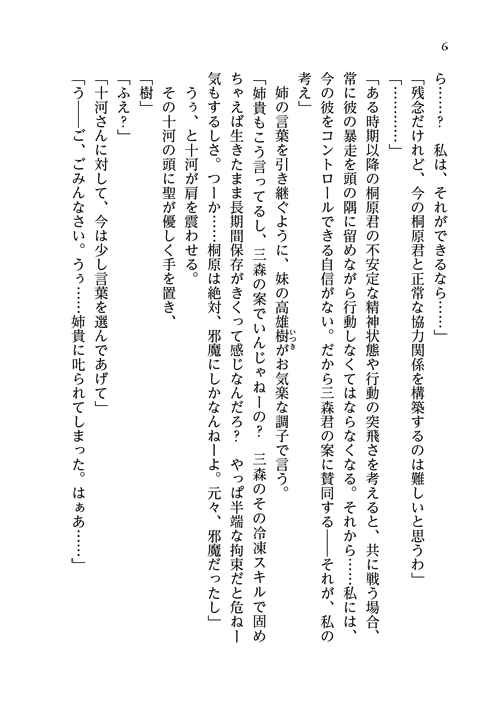 6
ら……？　私は、それができるなら……」
「残念だけれど、今の桐原君と正常な協力関係を構築するのは難しいと思うわ」
「…………」
「ある時期以降の桐原君の不安定な精神状態や行動の突飛さを考えると、共に戦う場合、
常に彼の暴走を頭の隅に留めながら行動しなくてはならなくなる。それから……私には、
今の彼をコントロールできる自信がない。だから三森君の案に賛同する――それが、私の
考え」
　姉の言葉を引き継ぐように、妹の高雄樹いつきがお気楽な調子で言う。
「姉貴もこう言ってるし、三森の案でいんじゃねーの？　三森のその冷凍スキルで固め
ちゃえば生きたまま長期間保存がきくって感じなんだろ？　やっぱ半端な拘束だと危ねー
気もするしさ。つーか……桐原は絶対、邪魔にしかなんねーよ。元々、邪魔だったし」
　うぅ、と十河が肩を震わせる。
　その十河の頭に聖が優しく手を置き、
「樹」
「ふえ？」
「十河さんに対して、今は少し言葉を選んであげて」
「う――ご、ごみんなさい。うぅ……姉貴に叱られてしまった。はぁあ……」